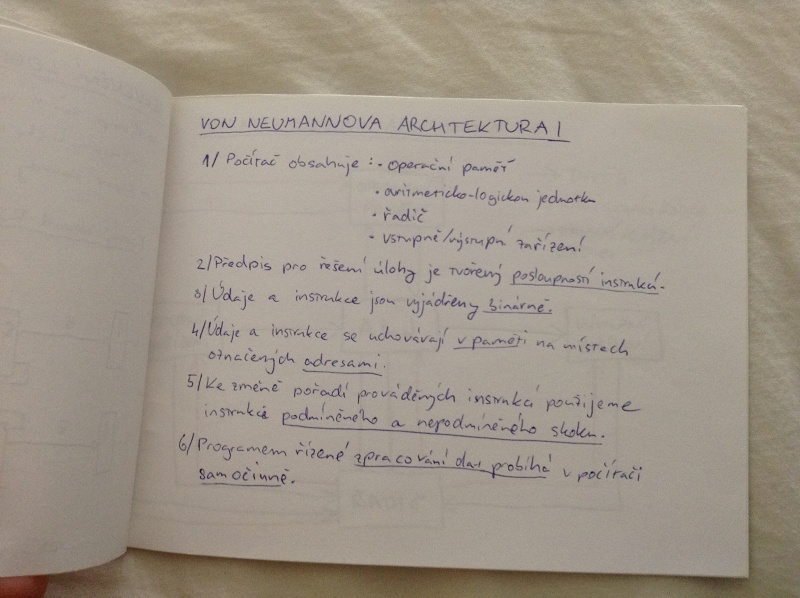 VON NEUMANNOVA ARCHTEKTURA I
1/ Počítač obsahuje : • operační paměť
• aritmeticko-logickou jednotku
• řadič
• vstupně/výstupní zařízení
2/ Předpis pro řešení úlohy je tvořený posloupností instrukcí.
3/ Údaje a instrukce jsou vyjádřeny binárně.
4/ Údaje a instrukce se uchovávají v paměti na místech
označených adresami.
5/ Ke změně pořadí prováděných instrukcí použijeme
instrukce podmíněného a nepodmíněného skoku.
6/ Programem řízené zpracování dat probíhá v počítači
samočinně.